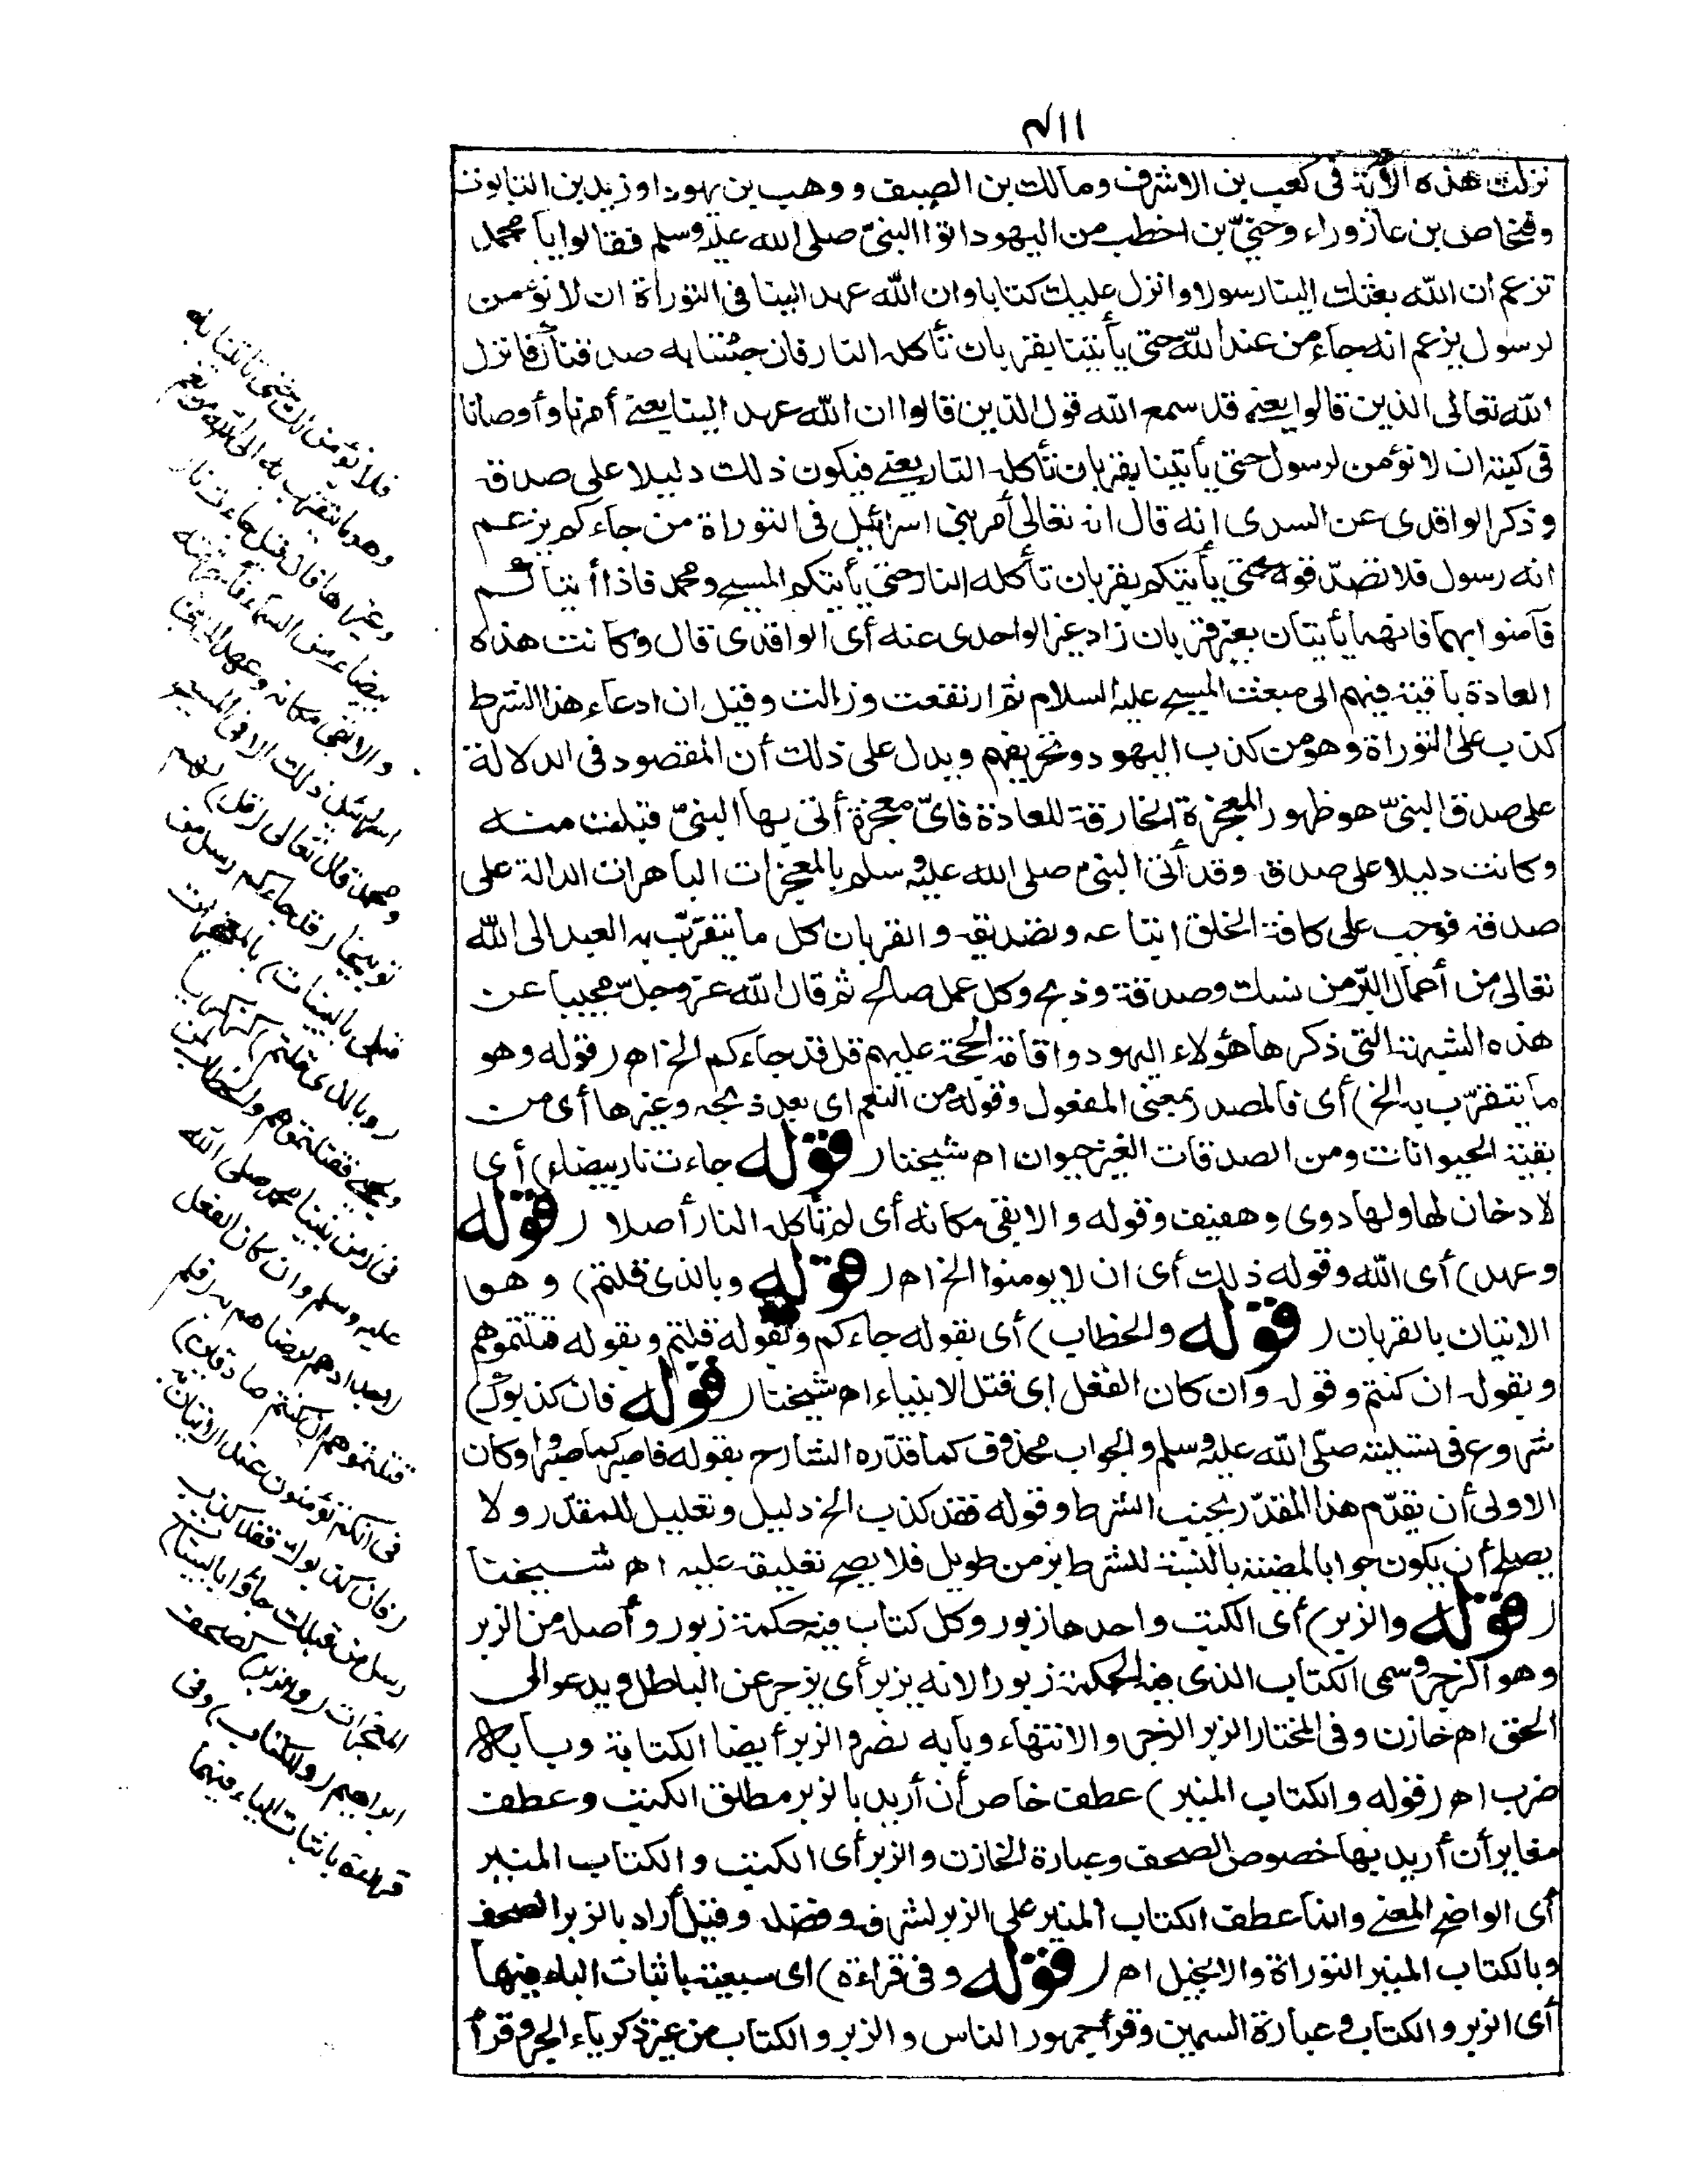 ٧١١
نزلت هذه الآية فى كعب بن الاشرف ومالك بن الصيف ووهب بن يهودا وزيد بن التابوت
وفنخاص بن عازوراء وحيىّ بن اخطب من اليهود اتوا النبىّ صلى الله عليه وسلم فقالوا يا محمد
تزعم ان الله بعثك الينا رسولا وانزل عليك كتابا وان الله عهد الينا فى التوراة ان لا نؤمن
لرسول يزعم انه جاء من عند الله حتى يأتينا بقربان تأكله النار فان جئتنا به صدقناك فانزل
الله تعالى الذين قالوا يعنى قد سمع الله قول الذين قالوا ان الله عهد الينا يعنى أمرنا وأوصانا
فى كتبه ان لا نؤمن لرسول حتى يأتينا بقربان تأكله النار يعنى فيكون ذلك دليلا على صدقه
وذكر الواقدى عن السدى انه قال ان تعالى أمر بنى اسرائيل فى التوراة من جاءكم يزعم
انه رسول فلا تصدّقوه حتى يأتيكم بقربان تأكله النار حتى يأتيكم المسيح ومحمد فاذا أتياكم
فآمنوا بهما فانهما يأتيان بغير قربان زاد غير الواحدى عنه أى الواقدى قال وكانت هذه
العادة باقية فيهم الى مبعث المسيح عليه السلام ثم ارتفعت وزالت وقيل ان ادعاء هذا الشرط
كذب على التوراة وهو من كذب اليهود وتحريفهم ويدل على ذلك أن المقصود فى الدلالة
على صدق النبىّ هو ظهور المعجزة الخارقة للعادة فاىّ معجزة أتى بها النبىّ قبلت منه
وكانت دليلا على صدقه وقد أتى النبى صلى الله عليه وسلم بالمعجزات الباهرات الدالة على
صدقه فوجب على كافة الخلق اتباعه وتصديقه والقربان كل ما يتقرّب به العبد الى الله
تعالى من أعمال البرّ من نسك وصدقة وذبح وكل عمل صالح ثم قال الله عز وجل مجيبا عن
هذه الشبهة التى ذكرها هؤلاء اليهود واقامة الحجة عليهم قل قد جاءكم الخ اه (قوله وهو
ما يتقرّب به الخ) أى فالمصدر بمعنى المفعول وقوله من النعم اى بعد ذبحه وغيرها أى من
بقية الحيوانات ومن الصدقات الغير حيوان اه شيخنا (قوله جاءت نار بيضاء) أى
لا دخان لها ولها دوى وهفيف وقوله والا بقى مكانه أى لم تأكله النار أصلا (قوله
وعهد) أى الله وقوله ذلك أى ان لا يومنوا الخ اه (قوله وبالذى قلتم) وهو
الاتيان بالقربان (قوله والخطاب) أى بقوله جاءكم وبقوله قلتم وبقوله قتلتموهم
وبقوله ان كنتم وقوله وان كان الفعل اى قتل الانبياء اه شيخنا (قوله فان كذبوك)
شروع فى تسليته صلى الله عليه وسلم والجواب محذوف كما قدّره الشارح بقوله فاصبر كما صبروا وكان
الاولى أن يقدّم هذا المقدّر بجنب الشرط وقوله فقد كذب الخ دليل وتعليل للمقدّر ولا
يصلح أن يكون جوابا لمضيه بالنسبة للشرط بزمن طويل فلا يصح تعليقه عليه اه شيخنا
(قوله والزبر) أى الكتب واحدها زبور وكل كتاب فيه حكمة زبور وأصله من الزبر
وهو الزجر وسمى الكتاب الذى فيه الحكمة زبورا لانه يزبر أى يزجر عن الباطل ويدعو الى
الحق اه خازن وفى المختار الزبر الزجر والانتهاء وبابه نصر والزبر أيضا الكتابة وبابه
ضرب اه (قوله والكتاب المنير) عطف خاص أن أريد بالزبر مطلق الكتب وعطف
مغاير أن أريد بها خصوص الصحف وعبارة الخازن والزبر أى الكتب والكتاب المنير
أى الواضح المعنى وانما عطف الكتاب المنير على الزبر لشرفه وفضله وقيل أراد بالزبر الصحف
وبالكتاب المنير التوراة والانجيل اه (قوله وفى قراءة) اى سبعية باثبات الباء فيهما
أى الزبر والكتاب وعبارة السمين وقرأ جمهور الناس والزبر والكتاب من غير ذكر باء الجر وقرأ
فلا نؤمن لك حتى تأتينا به
وهو ما يتقرب به الى الله من نعم
وغيرها فان قبل جاءت نار
بيضاء من السماء فأحرقته
والا بقى مكانه وعهد الى بنى
اسرائيل ذلك الا فى المسيح
ومحمد قال تعالى (قل) لهم
توبيخا (قد جاءكم رسل من
قبلى بالبينات) بالمعجزات
(وبالذى قلتم) كزكريا
ويحيى فقتلتموهم والخطاب لمن
فى زمن نبينا محمد صلى الله
عليه وسلم وان كان الفعل
لاجدادهم لرضاهم به (فلم
قتلتموهم ان كنتم صادقين)
فى انكم تؤمنون عند الاتيان به
(فان كذبوك فقد كذب
رسل من قبلك جاؤا بالبينات)
المعجزات (والزبر) كصحف
ابراهيم (والكتاب) وفى
قراءة باثبات الباء فيهما